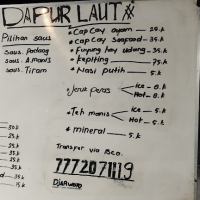 DAPUR LAUT
Pilihan saus
saus. Padang
saus. A.manis
saus. Tiram
• Cap Cay ayam — 25.k
• Cap Cay Seafood — 35.k
• Fuyung hay udang — 35.k
• kepiting — 75.k
• Nasi putih — 5.k
• Jeruk peras Ice — 8.k
Hot — 8.k
• Teh manis Ice — 5.k
Hot — 5.k
• mineral — 5.k
30.k
25.k
35.k
25.k
35.k
35.k
15.k
Transper via Bca.
7772071119